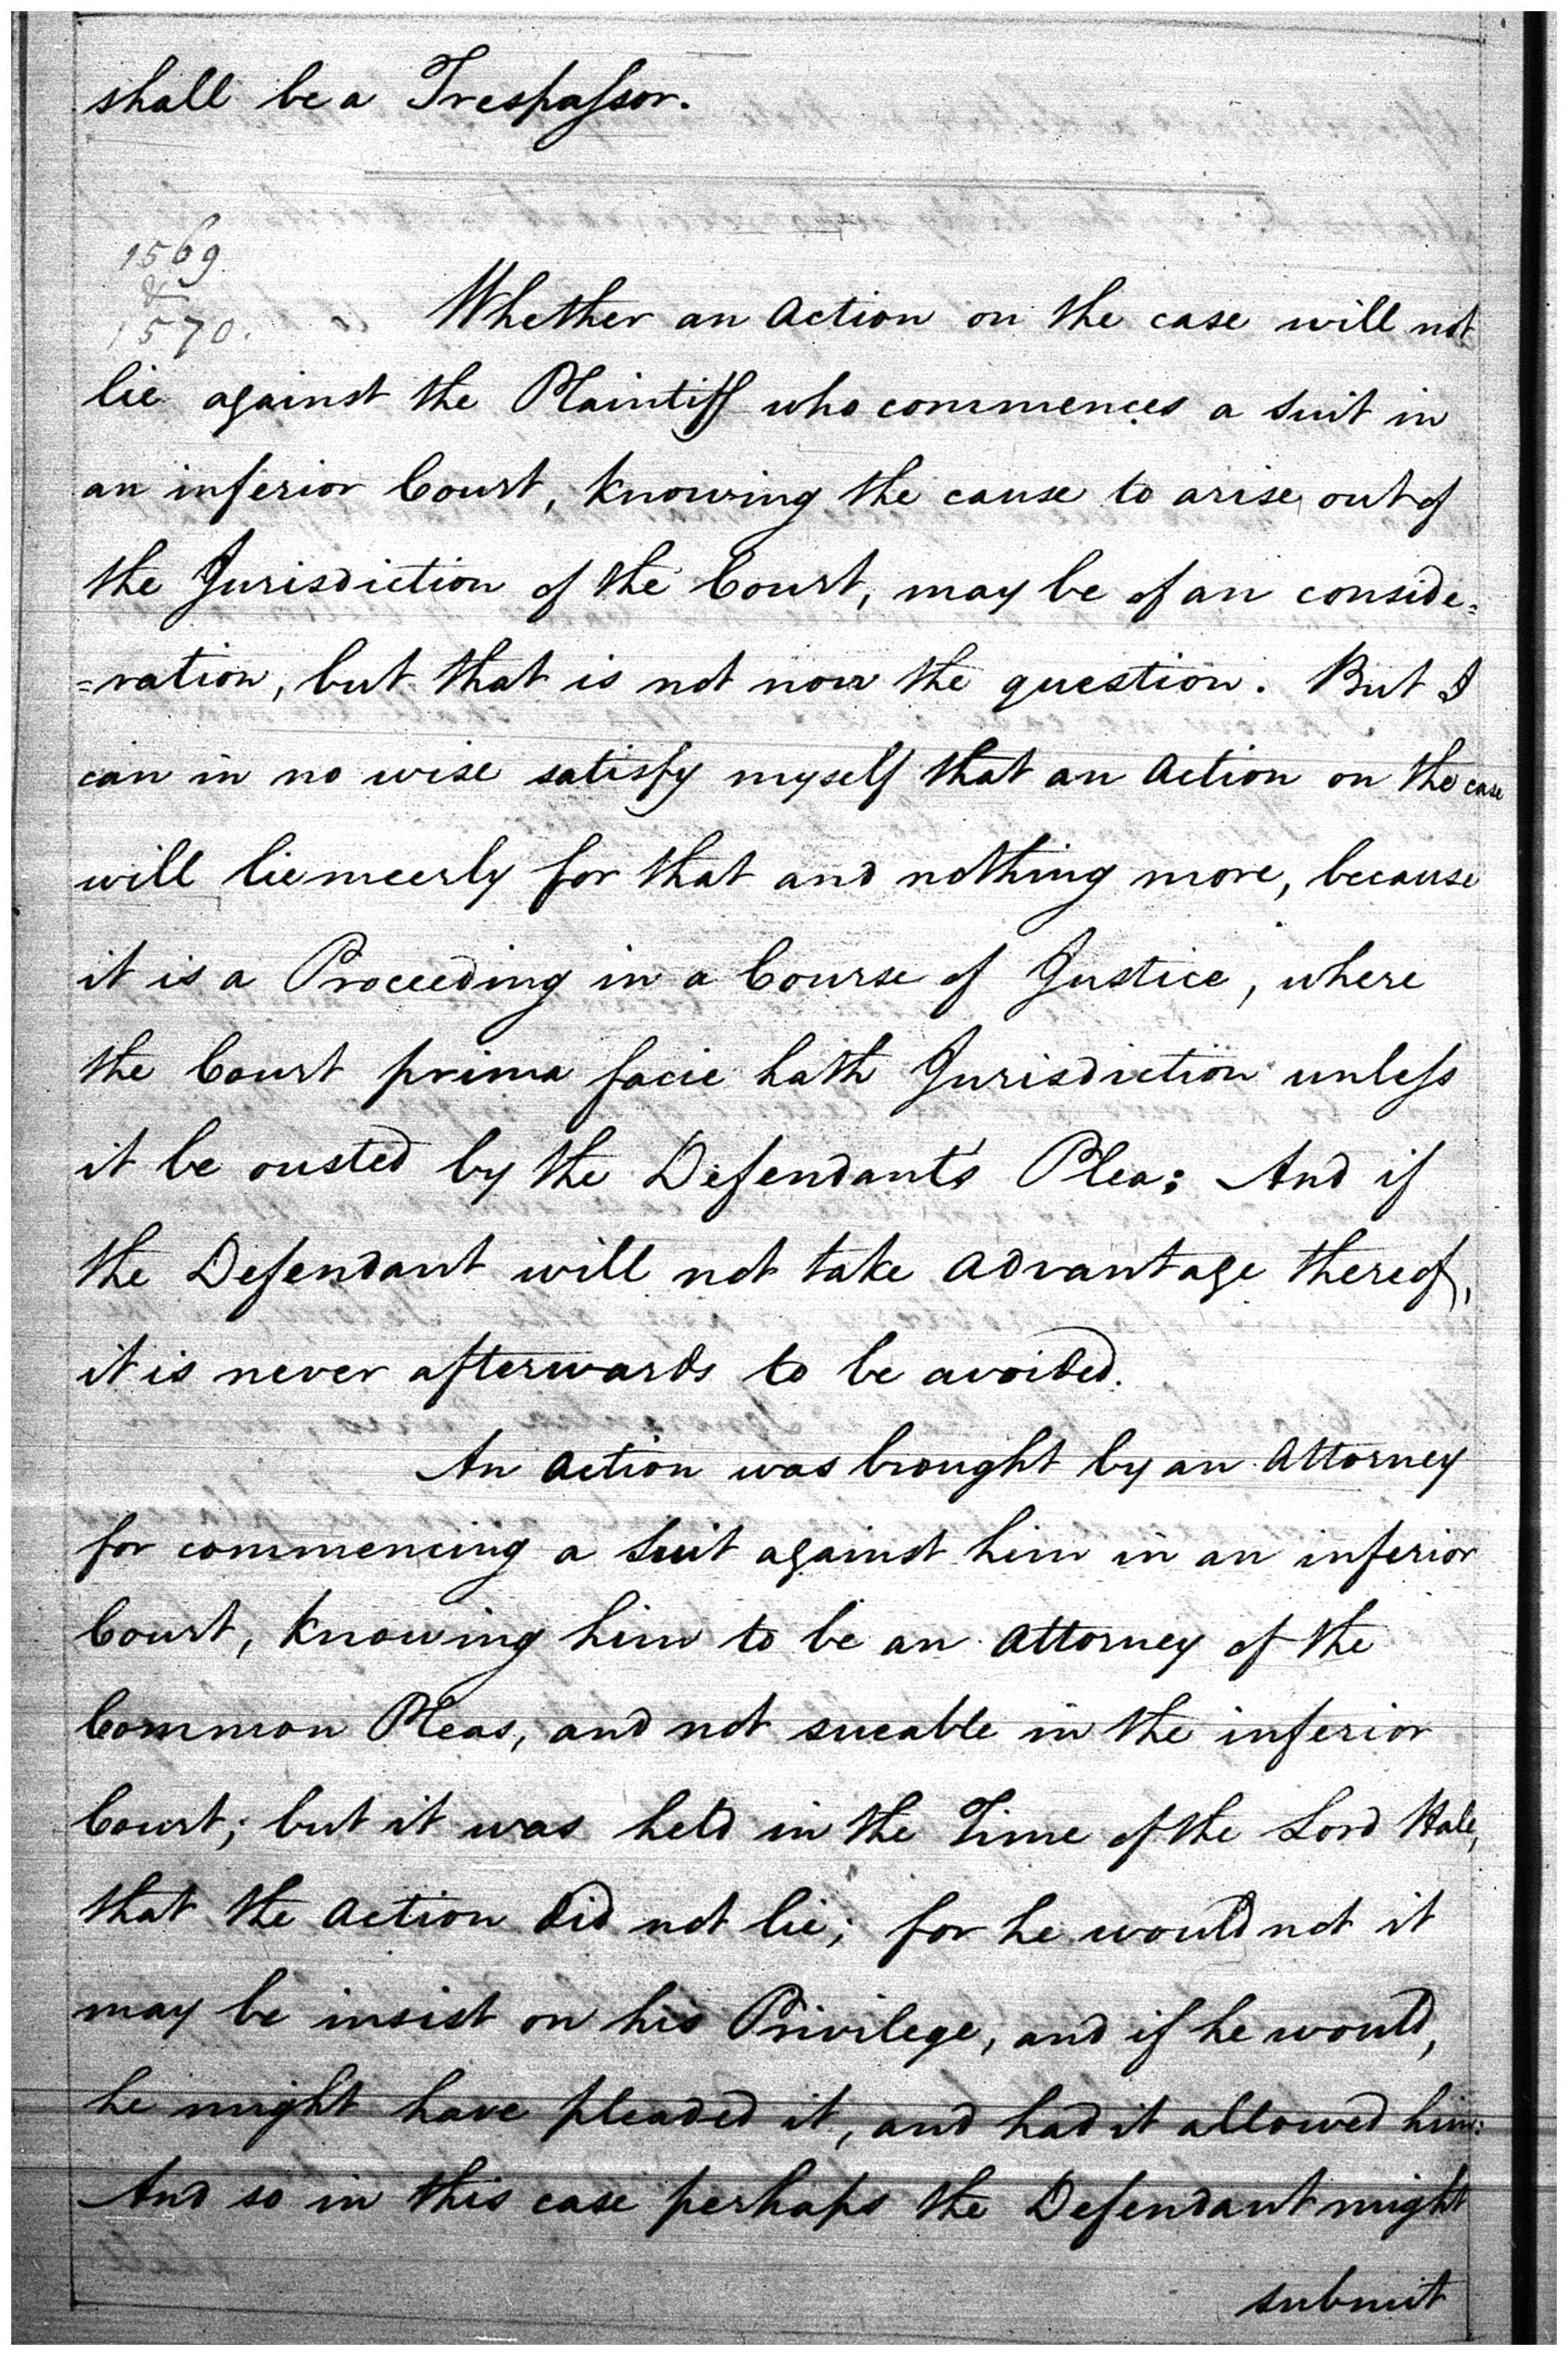 shall be a Trespaſsor.
1569
&
1570.
Whether an Action on the case will not
lie against the Plaintiff who commences a suit in
an inferior Court, knowing the cause to arise out of
the Jurisdiction of the Court, may be of an conside=
=ration, but that is not now the question. But I
can in no wise satisfy myself that an Action on the case
will lie meerly for that and nothing more, because
it is a Proceeding in a Course of Justice, where
the Court prima facie hath Jurisdiction unleſs
it be ousted by the Defendant's Plea; And if
the Defendant will not take advantage thereof,
it is never afterwards to be avoided.
An Action was brought by an Attorney
for commencing a Suit against him in an inferior
Court, knowing him to be an Attorney of the
Common Pleas, and not sueable in the inferior
Court; but it was held in the Time of the Lord Hale,
that the Action did not lie; for he would not it
may be insist on his Privilege, and if he would,
he might have pleaded it, and had it allowed him:
And so in this case perhaps the Defendant might
submit